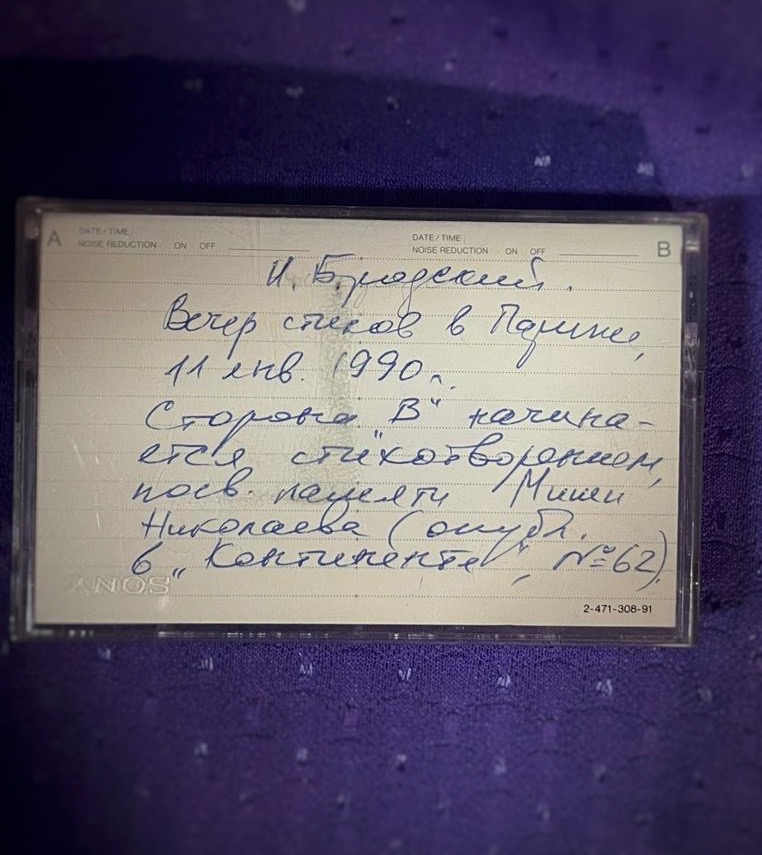 A DATE / TIME : DATE / TIME : B
NOISE REDUCTION ON OFF NOISE REDUCTION ON OFF
И. Бродский.
Вечер стихов в Париже,
11 янв. 1990 г.
Сторона „В“ начина-
ется стихотворением,
посв. памяти Миши
Николаева (опубл.
в „Континенте“, №62).
SONY
2-471-308-91